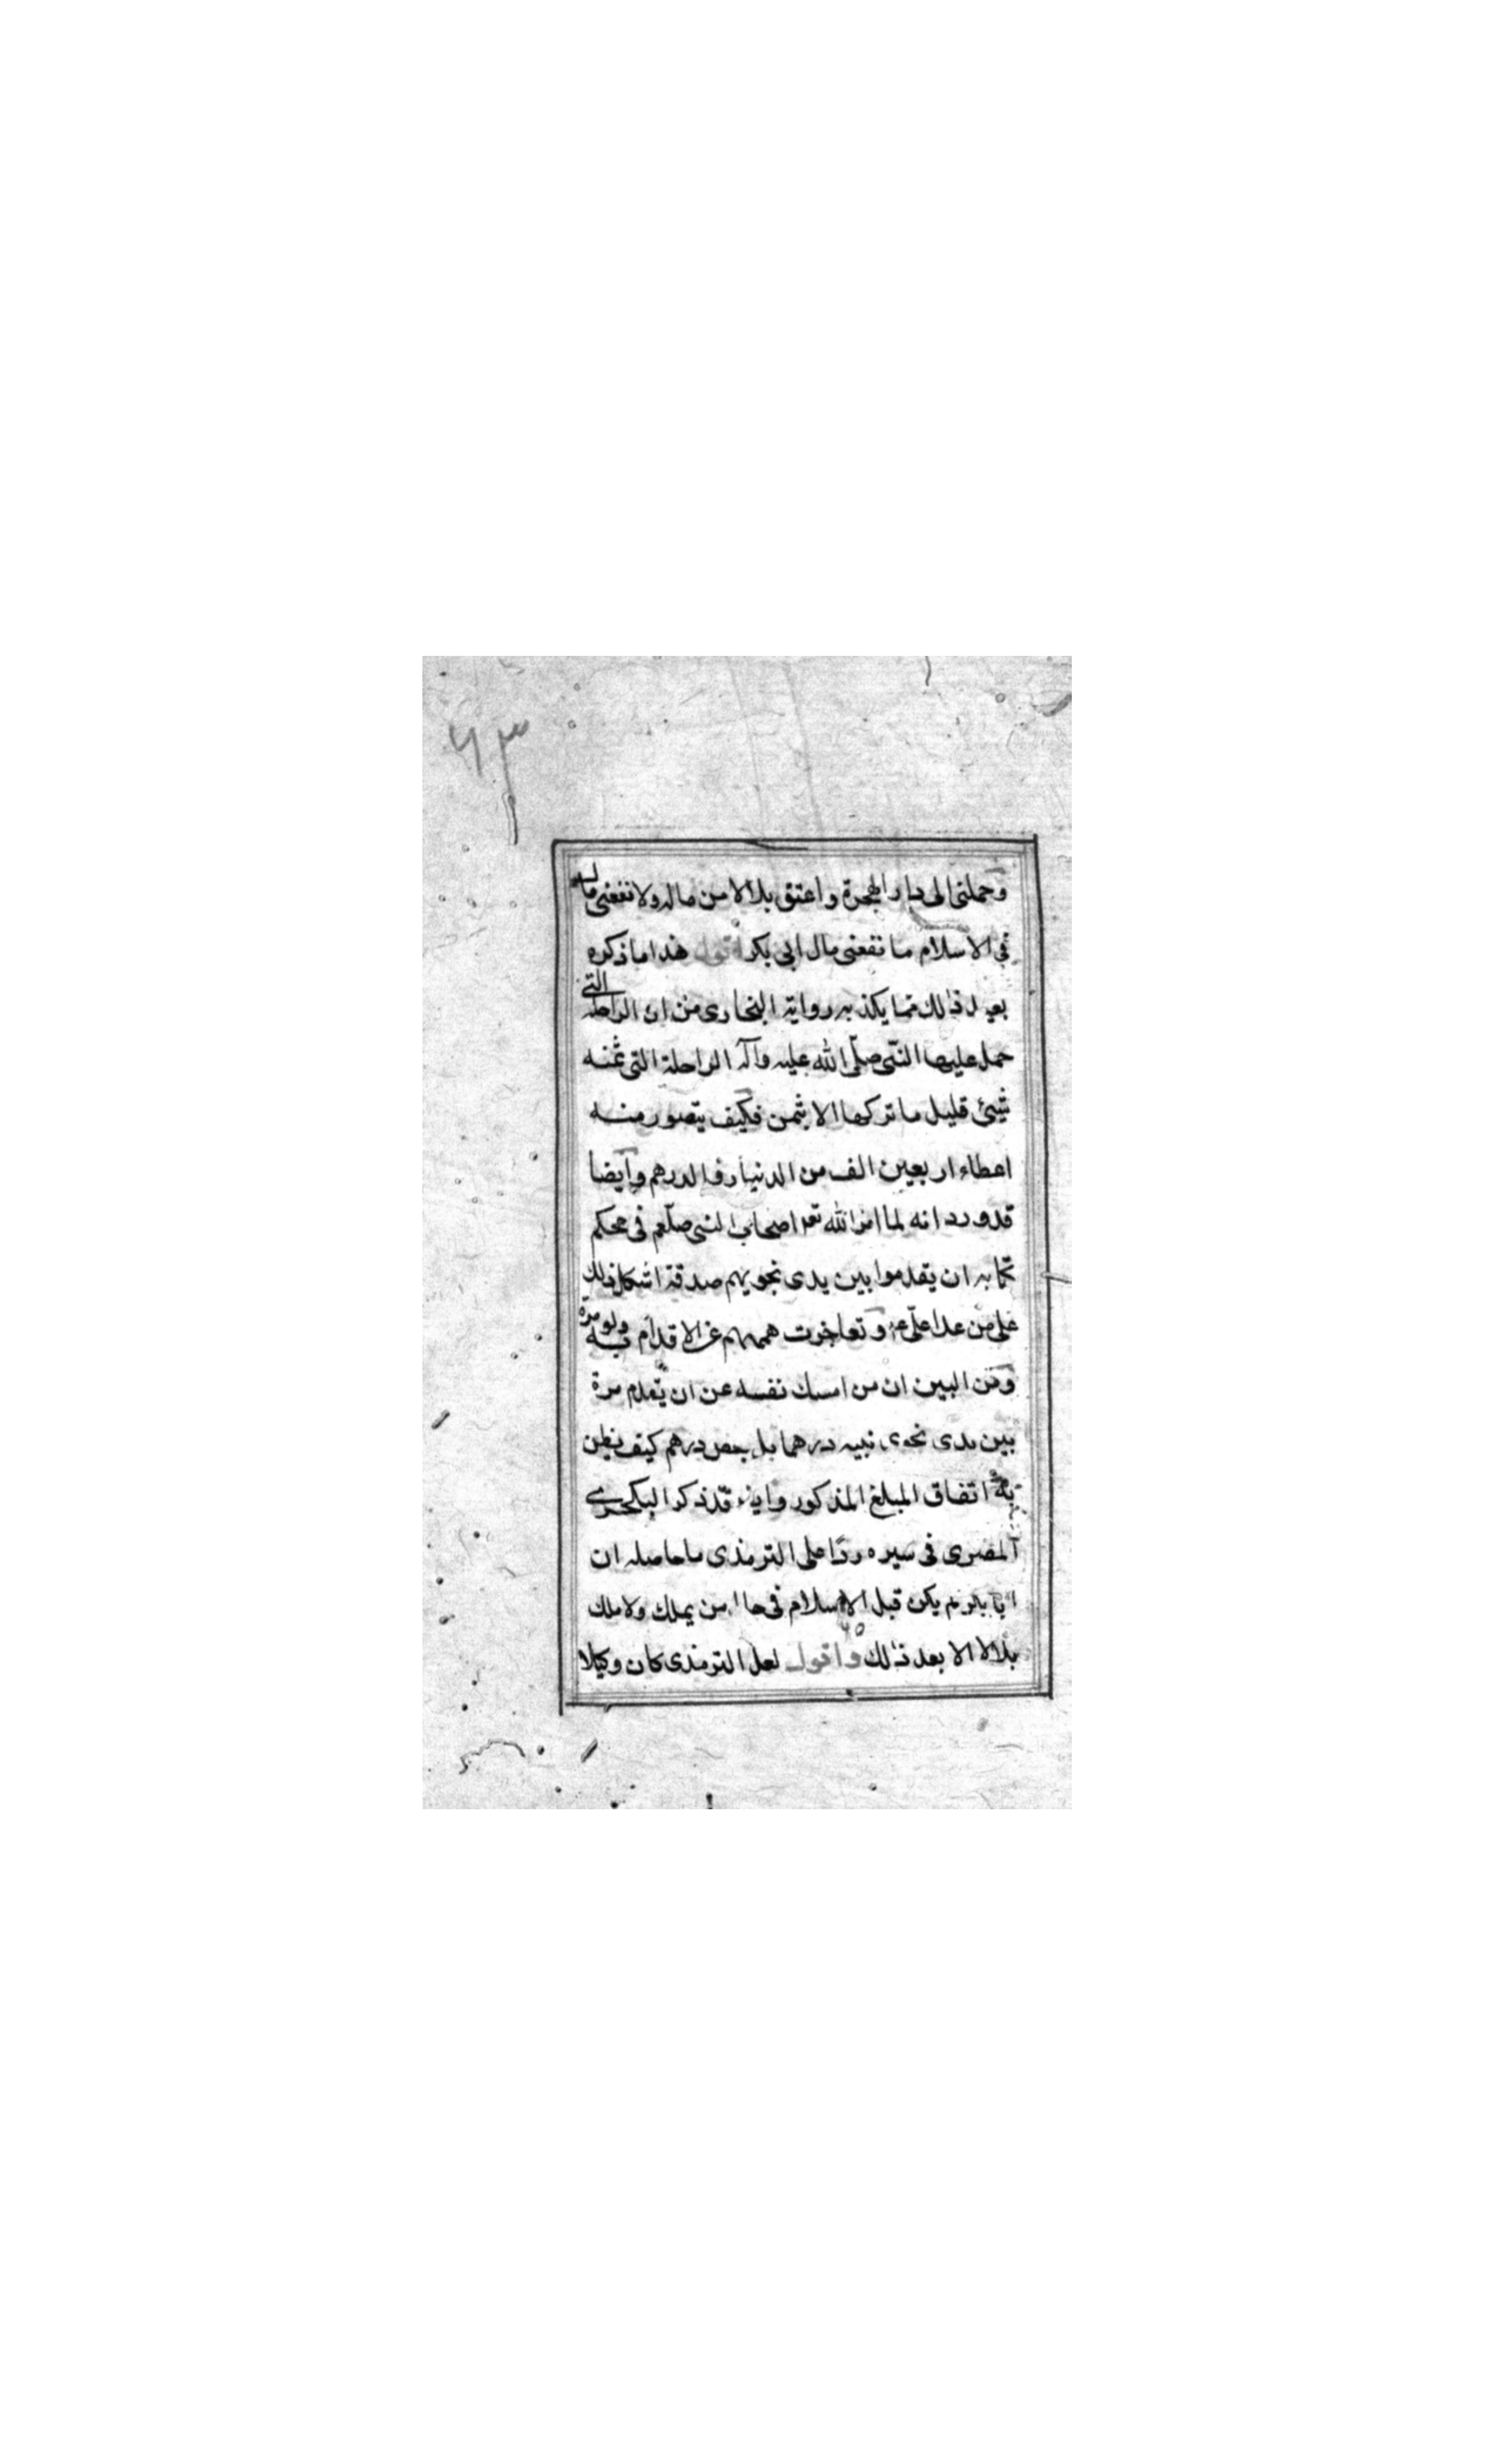 ٦٣
وحملنى الى دار الهجرة واعتق بلالا من ماله ولا نفعنى مال
فى الاسلام ما نفعنى مال ابى بكر اقول هذا ما ذكره
بعد ذلك مما يكذبه رواية البخارى من ان الراحلة التى
حمل عليها النّبى صلّى الله عليه وآله الراحلة التى ثمنه
شيئ قليل ما تركها الا بثمن فكيف يتصور منه
اعطاء اربعين الف من الدنيار والدرهم وايضا
قد ورد انه لما امر الله تعه اصحاب النبى صلّعم فى محكم
كتابه ان يقدموا بين يدى نجويهم صدقة اشكل ذلك
على من عدا علّى ع و تعاخرت هممهم عن الاقدام به ولو مرّة
ومن البين ان من امسك نفسه عن ان يقدم مرة
بين يدى نجوى نبيه درهما بل بعض درهم كيف يظن
به اتفاق المبلغ المذكور وايضا قد ذكر البكرى
المصرى فى سيره ردّا على الترمذى ما حاصله ان
ابا بكر لم يكن قبل الاسلام فى حال من يملك ولا ملك
بلالا الا بعد ذلك واقول لعل الترمذى كان وكيلا